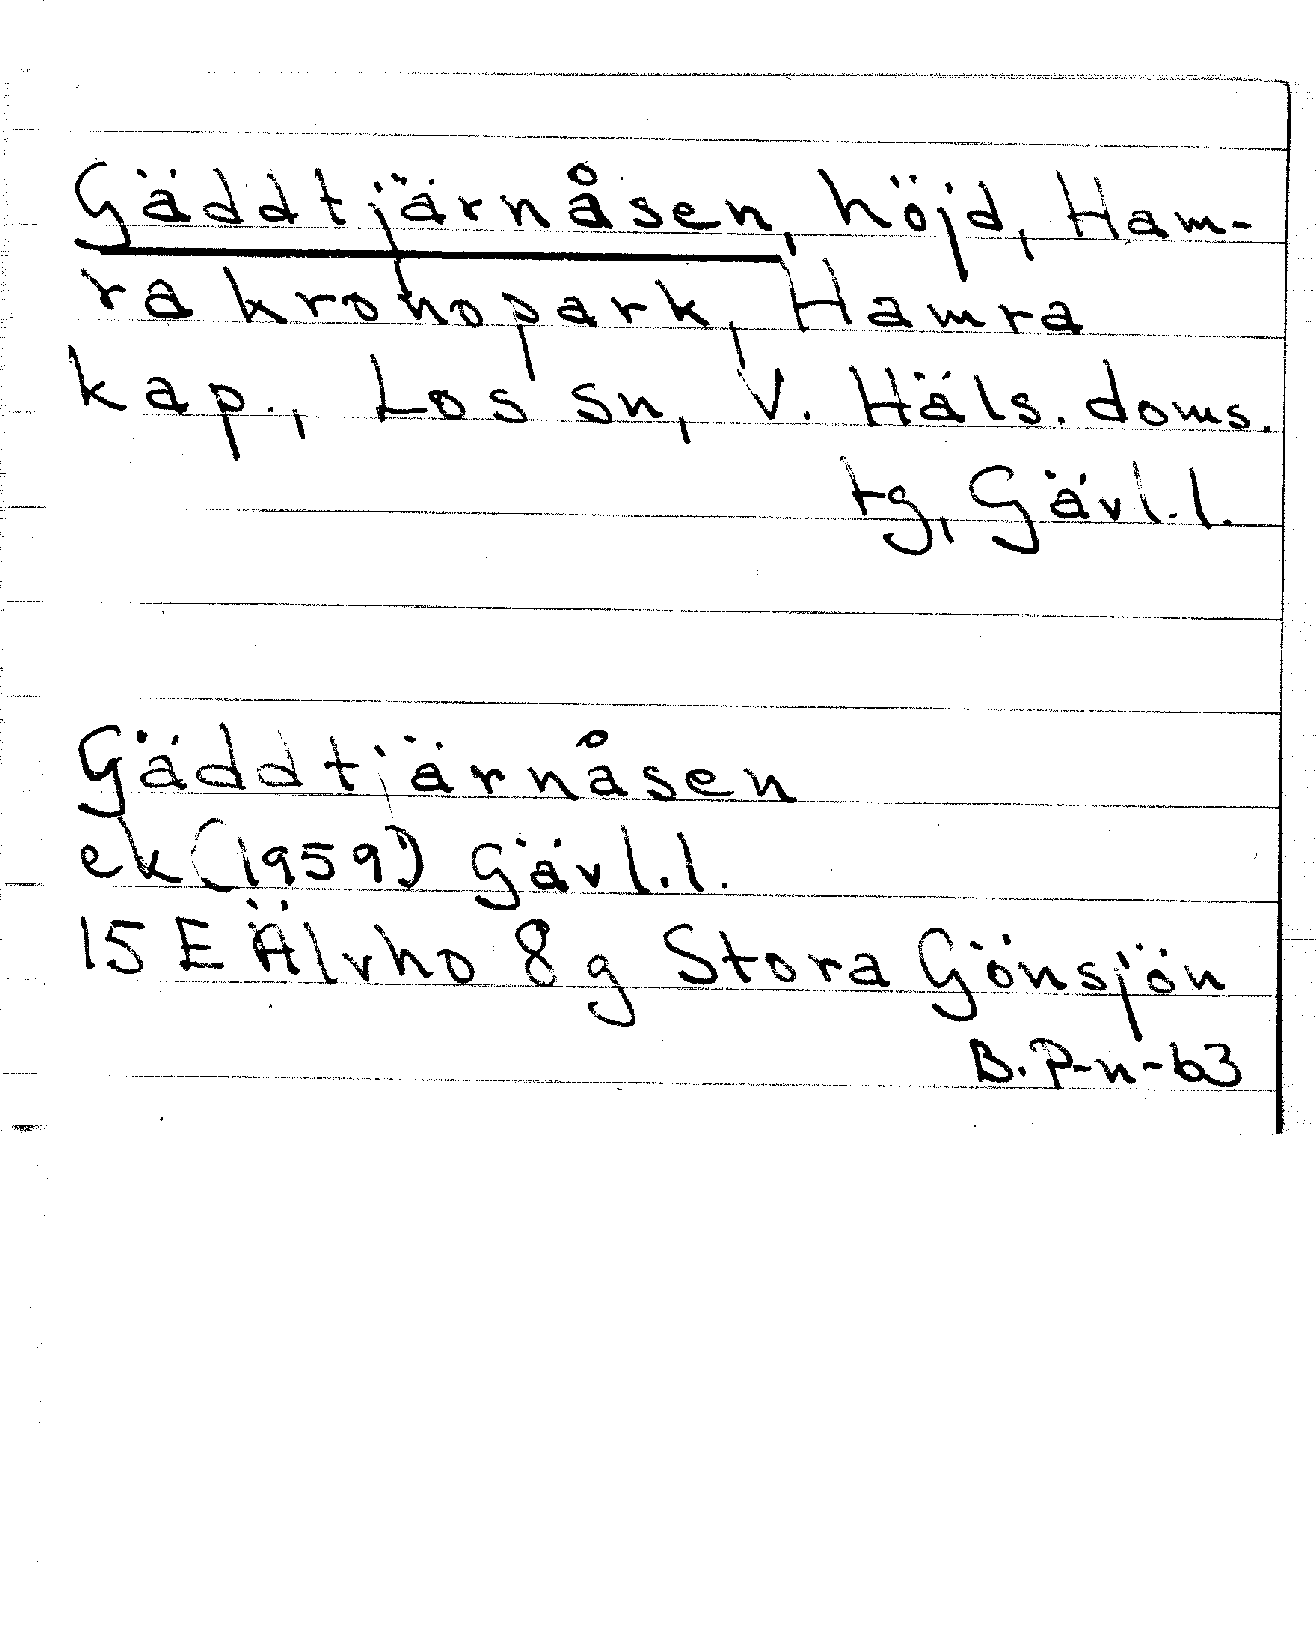 Gäddtjärnåsen, höjd, Ham-
ra kronopark, Hamra
kap., Los sn, V. Häls. doms.
tg, Gävl.l.
Gäddtjärnåsen
ek (1959) Gävl.l.
15 E Älvho 8g Stora Gönsjön
B.P-n-63